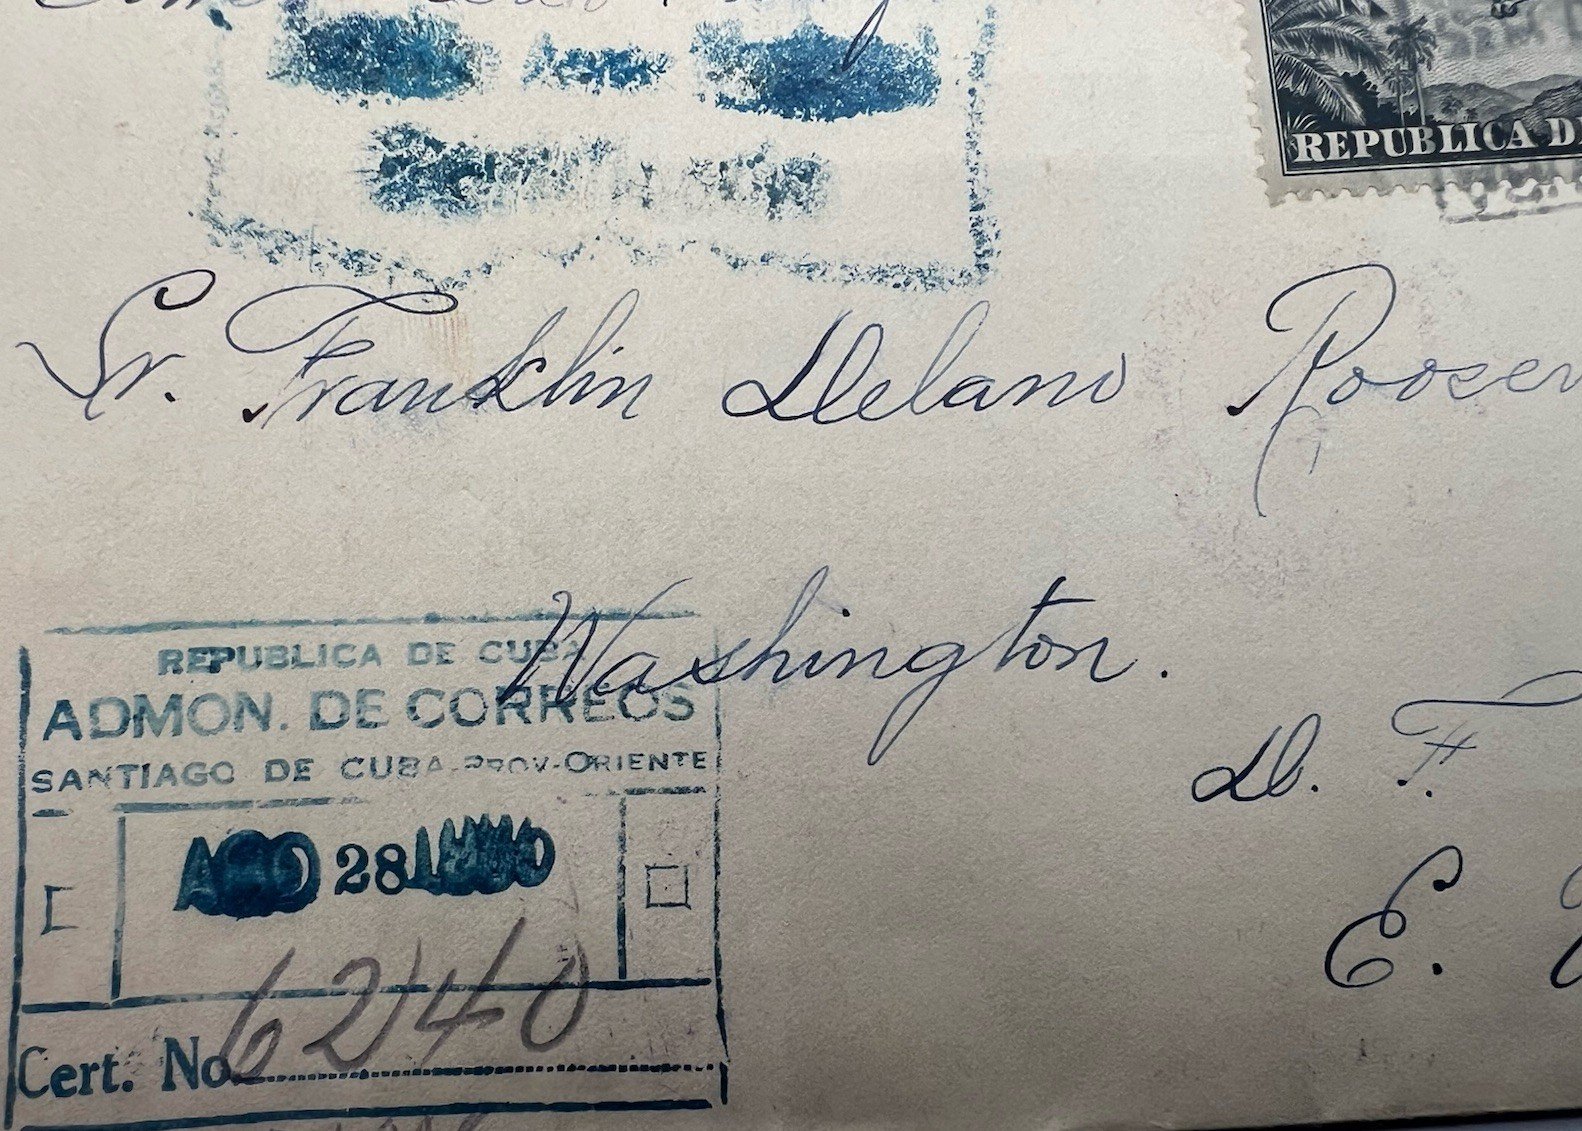 REPUBLICA DE
Sr. Franklin Delano Roosev
Washington.
REPUBLICA DE CUBA
ADMON. DE CORREOS
SANTIAGO DE CUBA-PROV-ORIENTE
D. F.
AGO 28
E.
6240
Cert. No.